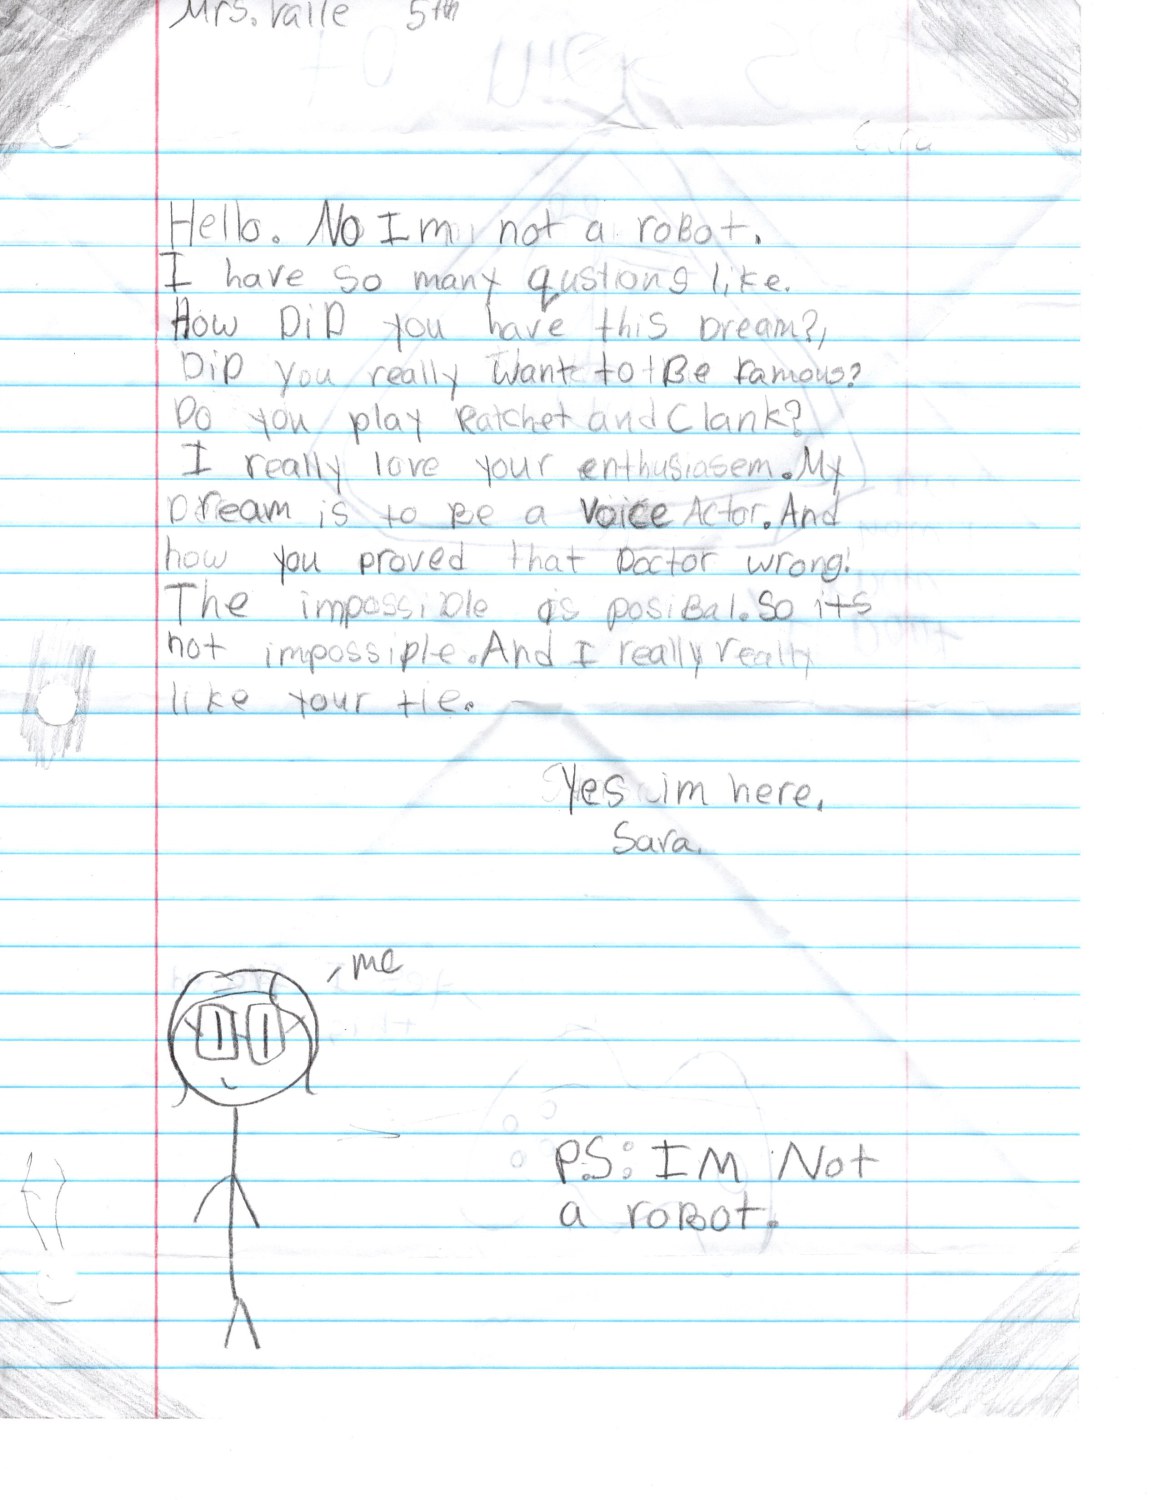 Mrs. Valle 5th
Hello. No Im not a roBot.
I have so many qustions like.
How DiD you have this Dream?,
DiD you really Want to Be famous?
Do you play Ratchet and Clank?
I really love your enthusiasem. My
Dream is to Be a Voice Actor. And
how you proved that Doctor wrong!
The impossible is posiBal. So its
not impossiple. And I really really
like your tie.
Yes im here,
Sara.
me
P.S: IM Not
a roBot.